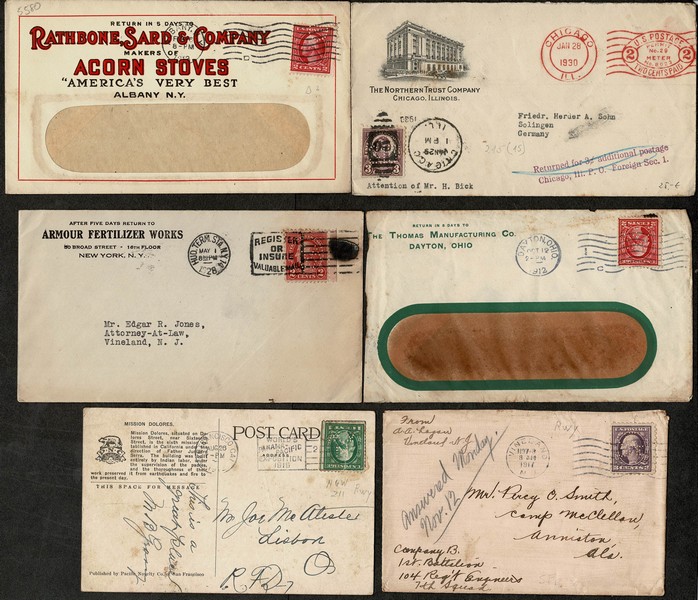 5580
RETURN IN 5 DAYS TO
RATHBONE, SARD & COMPANY
MAKERS OF
ACORN STOVES
"AMERICA'S VERY BEST
ALBANY N.Y.
8-PM
2 CENTS 2
THE NORTHERN TRUST COMPANY
CHICAGO, ILLINOIS.
CHICAGO
JAN 28
1930
ILL.
U.S. POSTAGE
2
PERMIT
No. 29
METER
TWO CENTS PAID
2
Friedr. Herder A. Sohn
Solingen
Germany
1930
CHICAGO
ILL.
JAN 29
1 PM
3 3
215 (15)
Returned for 3¢ additional postage
Chicago, Ill. P. O. Foreign Sec. 1.
Attention of Mr. H. Bick
25.-€
AFTER FIVE DAYS RETURN TO
ARMOUR FERTILIZER WORKS
80 BROAD STREET - 16TH FLOOR
NEW YORK, N. Y.
HUD. TERM. STA. N.Y. 14
MAY 1
PM
1928
REGISTER
OR
INSURE
VALUABLE MAIL
Mr. Edgar R. Jones,
Attorney-At-Law,
Vineland, N. J.
RETURN IN 5 DAYS TO
THE THOMAS MANUFACTURING CO.
DAYTON, OHIO
DAYTON, OHIO
OCT 19
PM
1912
MISSION DOLORES.
Mission Dolores, situated on Do-
lores Street, near Sixteenth
Street, is the sixth mission es-
tablished in California under the
direction of Father Junipero
Serra. The building was built
entirely by Indian labor, under
the supervision of the padres,
and the thoroughness of their
work preserved it from earthquakes and fire to
the present day.
THIS SPACE FOR MESSAGE
POST CARD
WORLD'S
PANAMA-PACIFIC
EXPOSITION
This is a
great place
M B
Mr Joe McAlister
Lisbon
R.F.D. O
Published by Pacific Novelty Co., San Francisco
From
Vineland N.J.
Answered Monday.
Nov. 12
8 AM
1917
Mr. Percy O. Smith,
Camp McClellan,
Anniston
Ala.
Company B.
1st. Battalion
104 Reg't Engineers
7th Squad